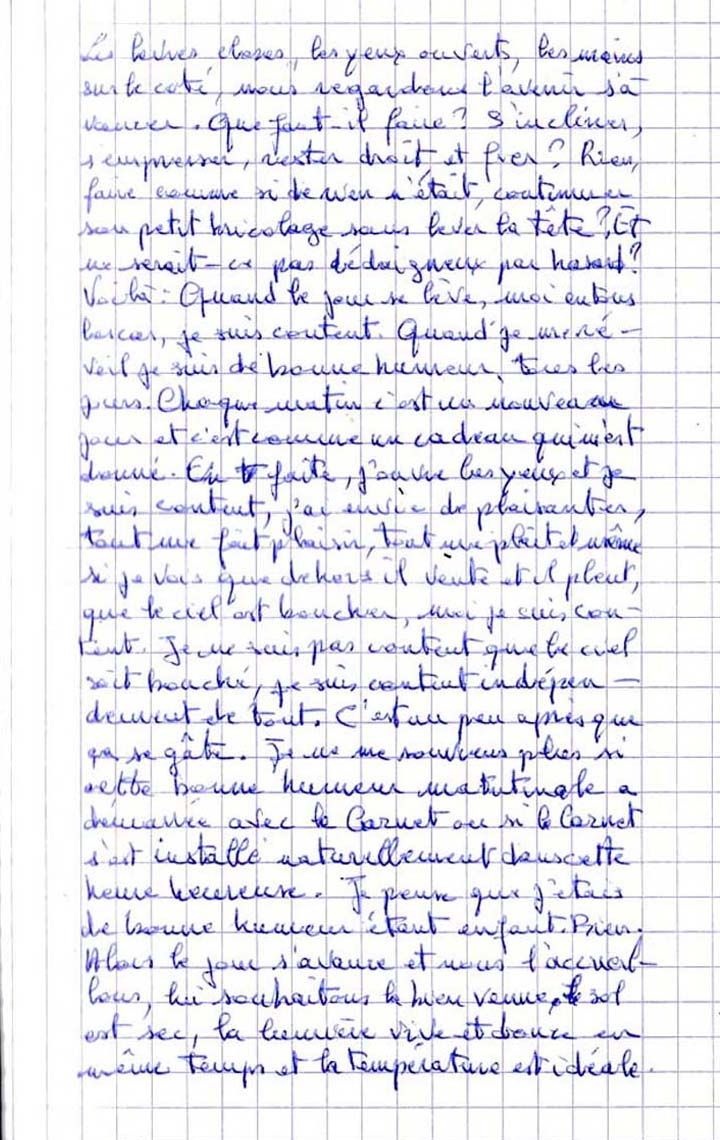 Les lèvres closes, les yeux ouverts, les mains
sur le coté, nous regardons l'avenir s'a-
vancer. Que faut-il faire? S'incliner,
s'empresser, rester droit et fier? Rien,
faire comme si de rien n'était, continuer
son petit bricolage sans lever la tête? Et
ne serait-ce pas dédaigneux par hasard?
Voilà: Quand le jour se lève, moi en tous
les cas, je suis content. Quand je me ré-
veil je suis de bonne humeur, tous les
jours. Chaque matin c'est un nouveau
jour et c'est comme un cadeau qui m'est
donné. En faite, j'ouvre les yeux et je
suis content, j'ai envie de plaisanter,
tout me fait plaisir, tout me plaît et même
si je vois que dehors il vente et il pleut,
que le ciel est boucher, moi je suis con-
tent. Je ne suis pas content que le ciel
soit bouché, je suis content indépen-
demment de tout. C'est un peu après que
ça se gâte. Je ne me souviens plus si
cette bonne humeur matutinale a
démarrée avec le Carnet ou si le Carnet
s'est installé naturellement dans cette
heure heureuse. Je pense que j'étais
de bonne humeur étant enfant. Bien.
Alors le jour s'avance et nous l'accueil-
lons, lui souhaitons la bien venue, le sol
est sec, la lumière vive et douce en
même temps et la température est idéale.